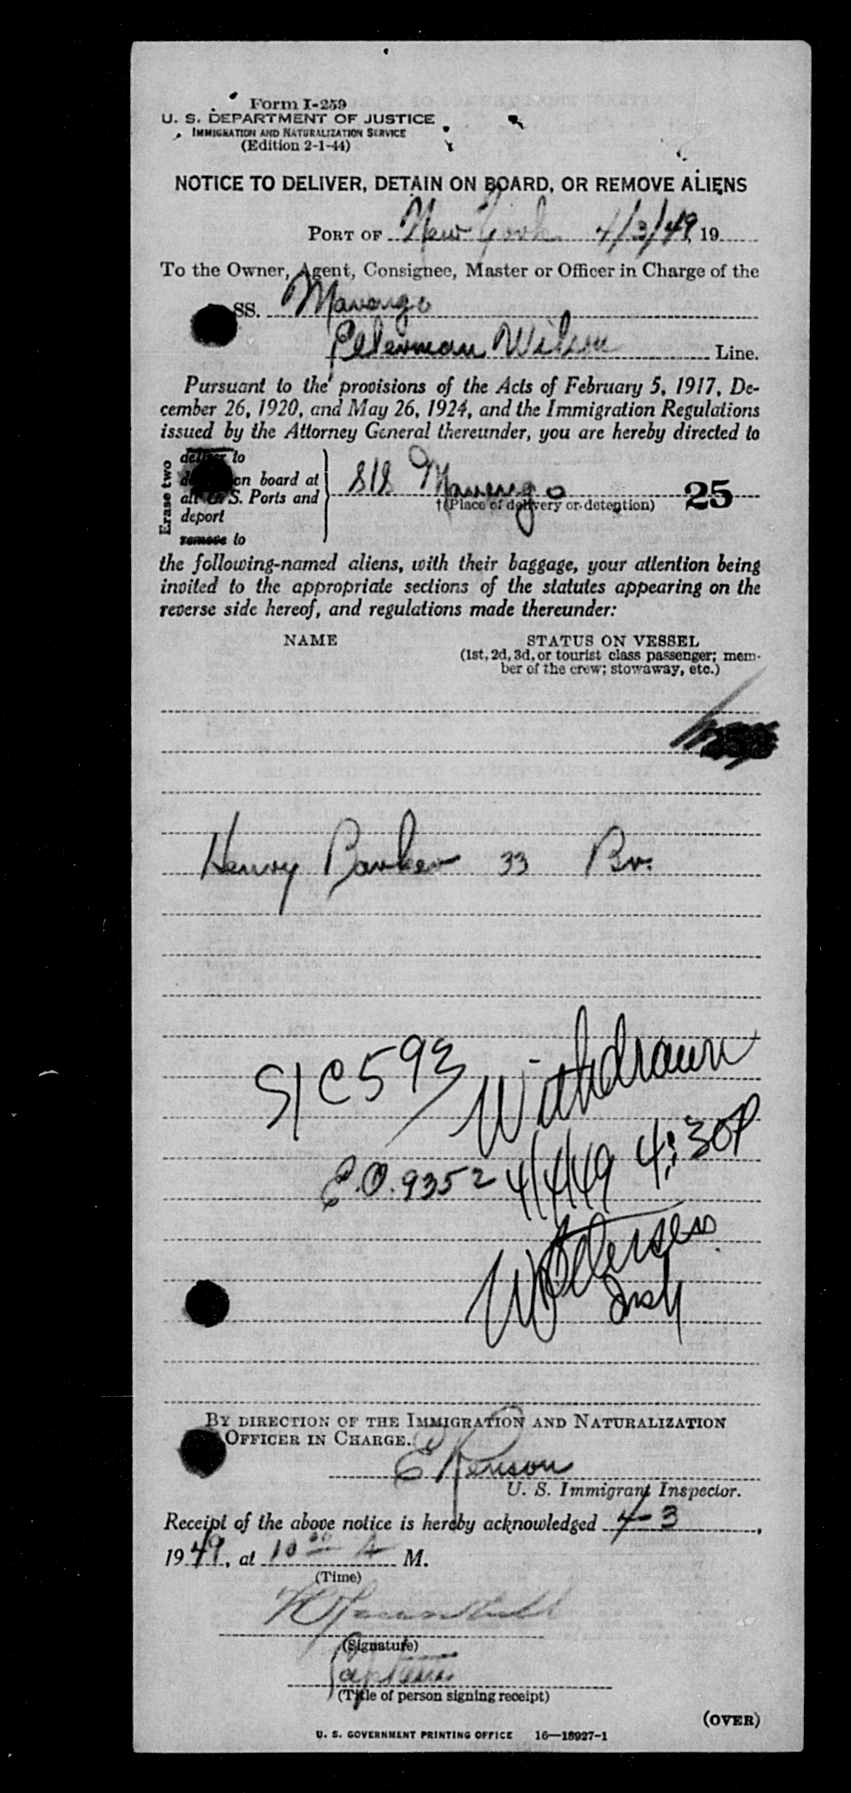 Form I-259
U. S. DEPARTMENT OF JUSTICE
IMMIGRATION AND NATURALIZATION SERVICE
(Edition 2-1-44)
NOTICE TO DELIVER, DETAIN ON BOARD, OR REMOVE ALIENS
PORT OF New York 4/3/49, 19
To the Owner, Agent, Consignee, Master or Officer in Charge of the
SS. Marengo
Ellerman Wilson Line.
Pursuant to the provisions of the Acts of February 5, 1917, De-
cember 26, 1920, and May 26, 1924, and the Immigration Regulations
issued by the Attorney General thereunder, you are hereby directed to
Erase two
deliver to
on board at
all U. S. Ports and
deport
remove to
S/S Marengo 25
†(Place of delivery or detention)
the following-named aliens, with their baggage, your attention being
invited to the appropriate sections of the statutes appearing on the
reverse side hereof, and regulations made thereunder:
NAME STATUS ON VESSEL
(1st, 2d, 3d, or tourist class passenger; mem-
ber of the crew; stowaway, etc.)
Henry Barker 33 Br.
S/C 593
Withdrawn
E.O. 9352 4/4/49 4:30P
W Petersen
By DIRECTION OF THE IMMIGRATION AND NATURALIZATION
OFFICER IN CHARGE.
U. S. Immigrant Inspector.
Receipt of the above notice is hereby acknowledged 4-3,
1949, at 10 00 A M.
(Time)
(Signature)
Captain
(Title of person signing receipt)
(OVER)
U. S. GOVERNMENT PRINTING OFFICE 16—18927-1